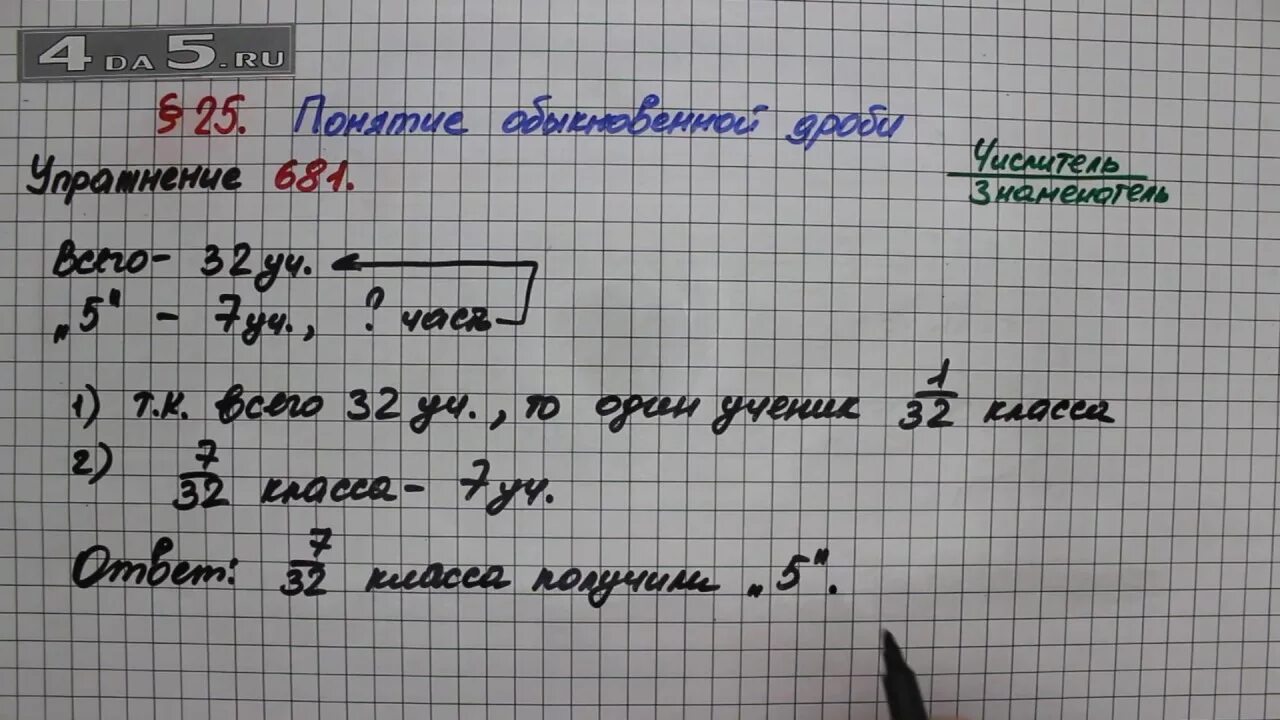 4DA5.RU
§ 25. Понятие обыкновенной дроби
Упражнение 681.
Числитель
Знаменатель
Всего - 32 уч.
„5“ - 7 уч., ? часть
1) т.к. всего 32 уч., то один ученик 1/32 класса
2) 7/32 класса - 7 уч.
Ответ: 7/32 класса получили „5“.